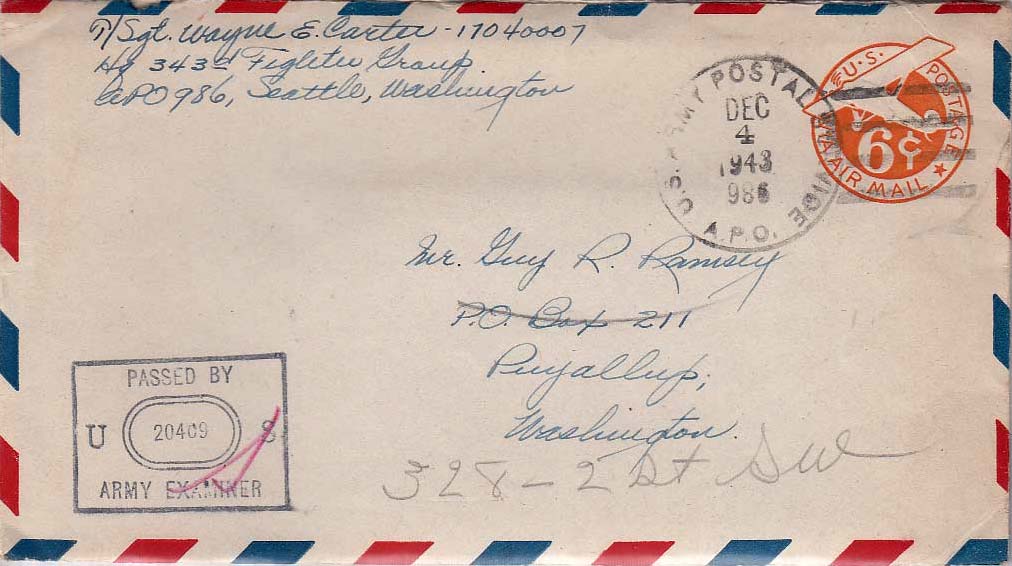 T/Sgt. Wayne E. Carter - 17040007
Hq 343rd Fighter Group
APO 986, Seattle, Washington
U.S. ARMY POSTAL SERVICE
DEC
4
1943
986
A.P.O.
U.S. POSTAGE
6¢
VIA AIR MAIL
Mr. Guy R. Ramsey
P.O. Box 211
Puyallup,
Washington.
328 - 2 St SW
PASSED BY
U 20409 S
ARMY EXAMINER